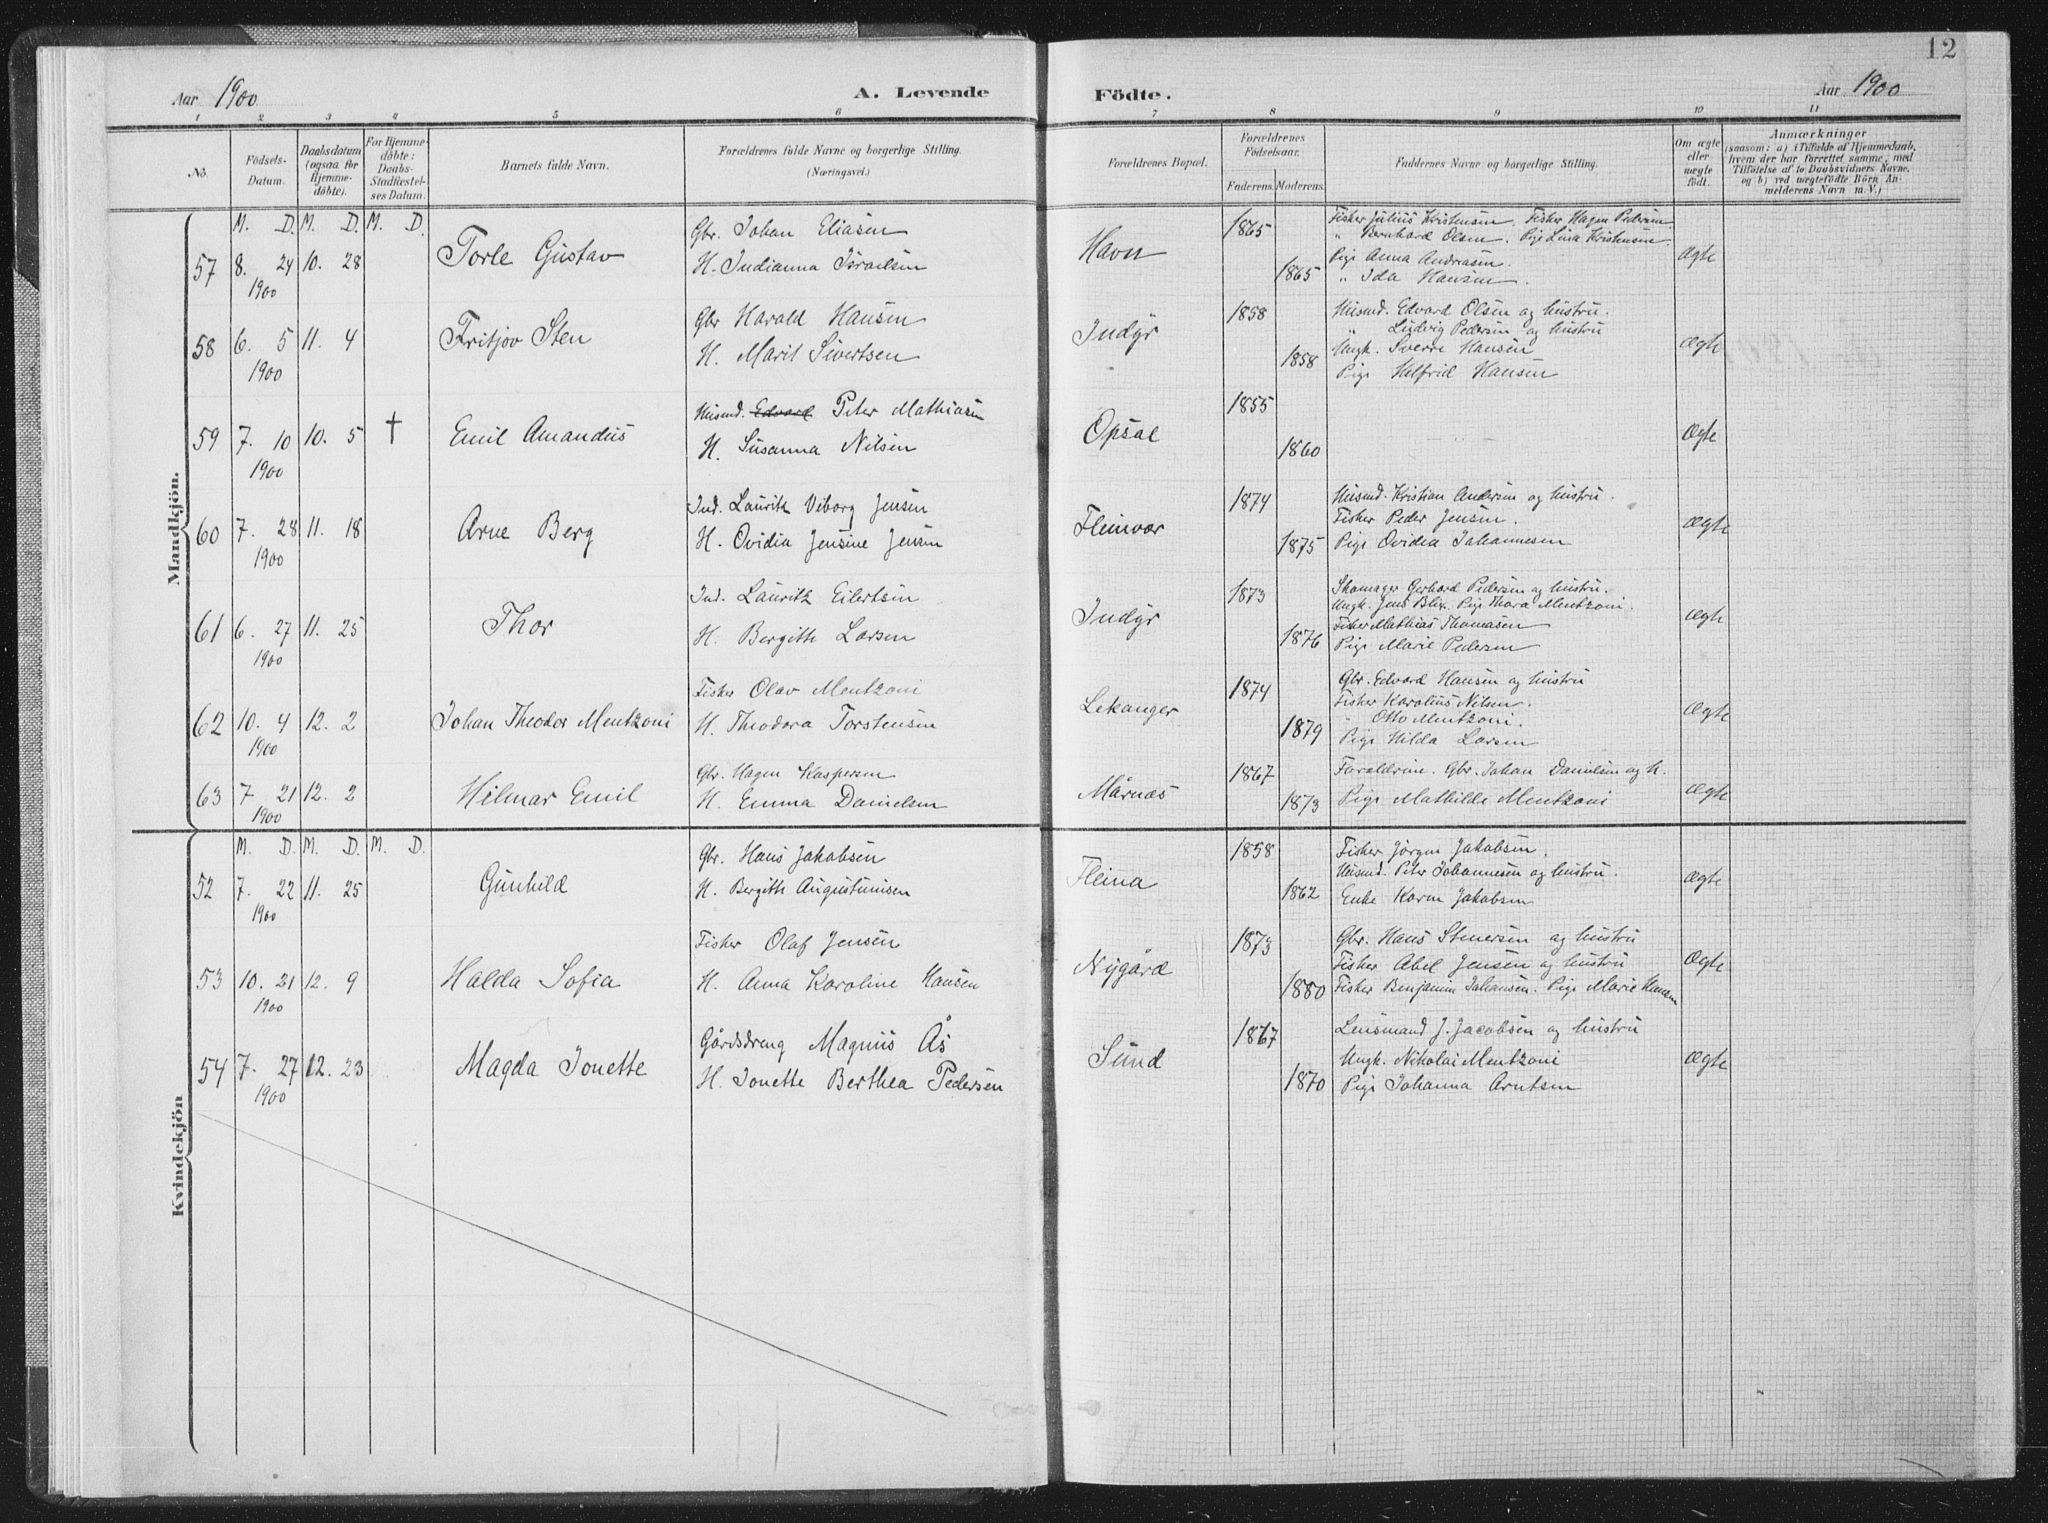 12
Aar 1900
A. Levende
Födte.
Aar 1900
1 2 3 4 5 6 7 8 9 10 11
No.
Födsels-Datum.
Daabsdatum (ogsaa for Hjemme-döbte).
For Hjemme-döbte: Daabs-Stadfæstel-ses Datum.
Barnets fulde Navn.
Forældrenes fulde Navne og borgerlige Stilling.
(Næringsvei.)
Forældrenes Bopæl.
Forældrenes Födselsaar.
Faderens. Moderens.
Faddernes Navne og borgerlige Stilling.
Om ægte eller uægte födt.
Anmærkninger
(saasom: a) i Tilfælde af Hjemmedaab, hvem der har forrettet samme, med Tilföielse af to Daabsvidners Navne, og b) ved uægtefödte Börn An-melderens Navn m. V.)
Mandkjön.
M. D. M. D. M. D.
57 8. 24 1900 10. 28 Torle Gustav
Gbr. Johan Eliasen
H. Indianna Israelsen
Havn 1865 1865
Fisker Julius Kristensen. Fisker Hagen Pedersen
" Bernhard Olsen. Pige Lina Kristensen.
Pige Anna Andreasen.
" Ida Hansen.
Ægte
58 6. 5 1900 11. 4 Fritjov Sten
Gbr Harald Hansen
H. Marit Sivertsen
Indyr 1858 1858
Husmd. Edvard Olsen og hustru.
" Ludvig Pedersen og hustru
Ungk. Sverre Hansen
Pige Halfrid Hansen
Ægte
59 7. 10 1900 10. 5 † Emil Amandus
Husmd. Edvard Peter Mathiasen
H. Susanna Nilsen
Opsal 1855 1860
Ægte
60 7. 28 1900 11. 18 Arne Berg
Ind. Lauritz Viborg Jensen
H. Ovidia Jensine Jensen
Fleinvær 1874 1875
Husmd. Kristian Andersen og hustru.
Fisker Peder Jensen.
Pige Ovidia Johannesen
Ægte
61 6. 27 1900 11. 25 Thor
Ind. Lauritz Eilertsen
H. Bergith Larsen
Indyr 1873 1876
Skomager Gerhard Pedersen og hustru.
Ungk. Jens Blix. Pige Thora Mentzoni.
Fisker Mathias Thomasen
Pige Marie Pedersen
Ægte
62 10. 4 1900 12. 2 Johan Theodor Mentzoni
Fisker Olav Mentzoni
H. Theodora Torstensen
Lekanger 1874 1879
Gbr. Edvard Hansen og hustru
Fisker Karolius Nilsen.
" Otto Mentzoni.
Pige Hilda Larsen
Ægte
63 7 21 1900 12. 2 Hilmar Emil
Gbr. Hagen Kaspersen
H. Emma Danielsen
Mårnæs 1867 1873
Forældrene. Gbr. Johan Danielsen og H.
Pige Mathilde Mentzoni
Ægte
Kvindekjön
M. D. M. D. M. D.
52 7. 22 1900 11. 25 Gunhild
Gbr. Hans Jakobsen
H. Bergith Augustinusen
Fleina 1858 1862
Fisker Jørgen Jakobsen.
Husmd. Peter Johannesen og hustru.
Enke Karen Jakobsen
Ægte
53 10. 21 1900 12. 9 Halda Sofia
Fisker Olaf Jensen
H. Anna Karoline Hansen
Nygård 1873 1880
Gbr. Hans Stenersen og hustru
Fisker Abel Jensen og hustru
Fisker Benjamin Johansen. Pige Marie Hansen
Ægte
54 7. 27 1900 12. 23 Magda Jonette
Gårdsdreng Magnus Ås
H. Jonette Berthea Pedersen
Sund 1867 1870
Lensmand J. Jacobsen og hustru
Ungk. Nikolai Mentzoni
Pige Johanna Arntsen
Ægte